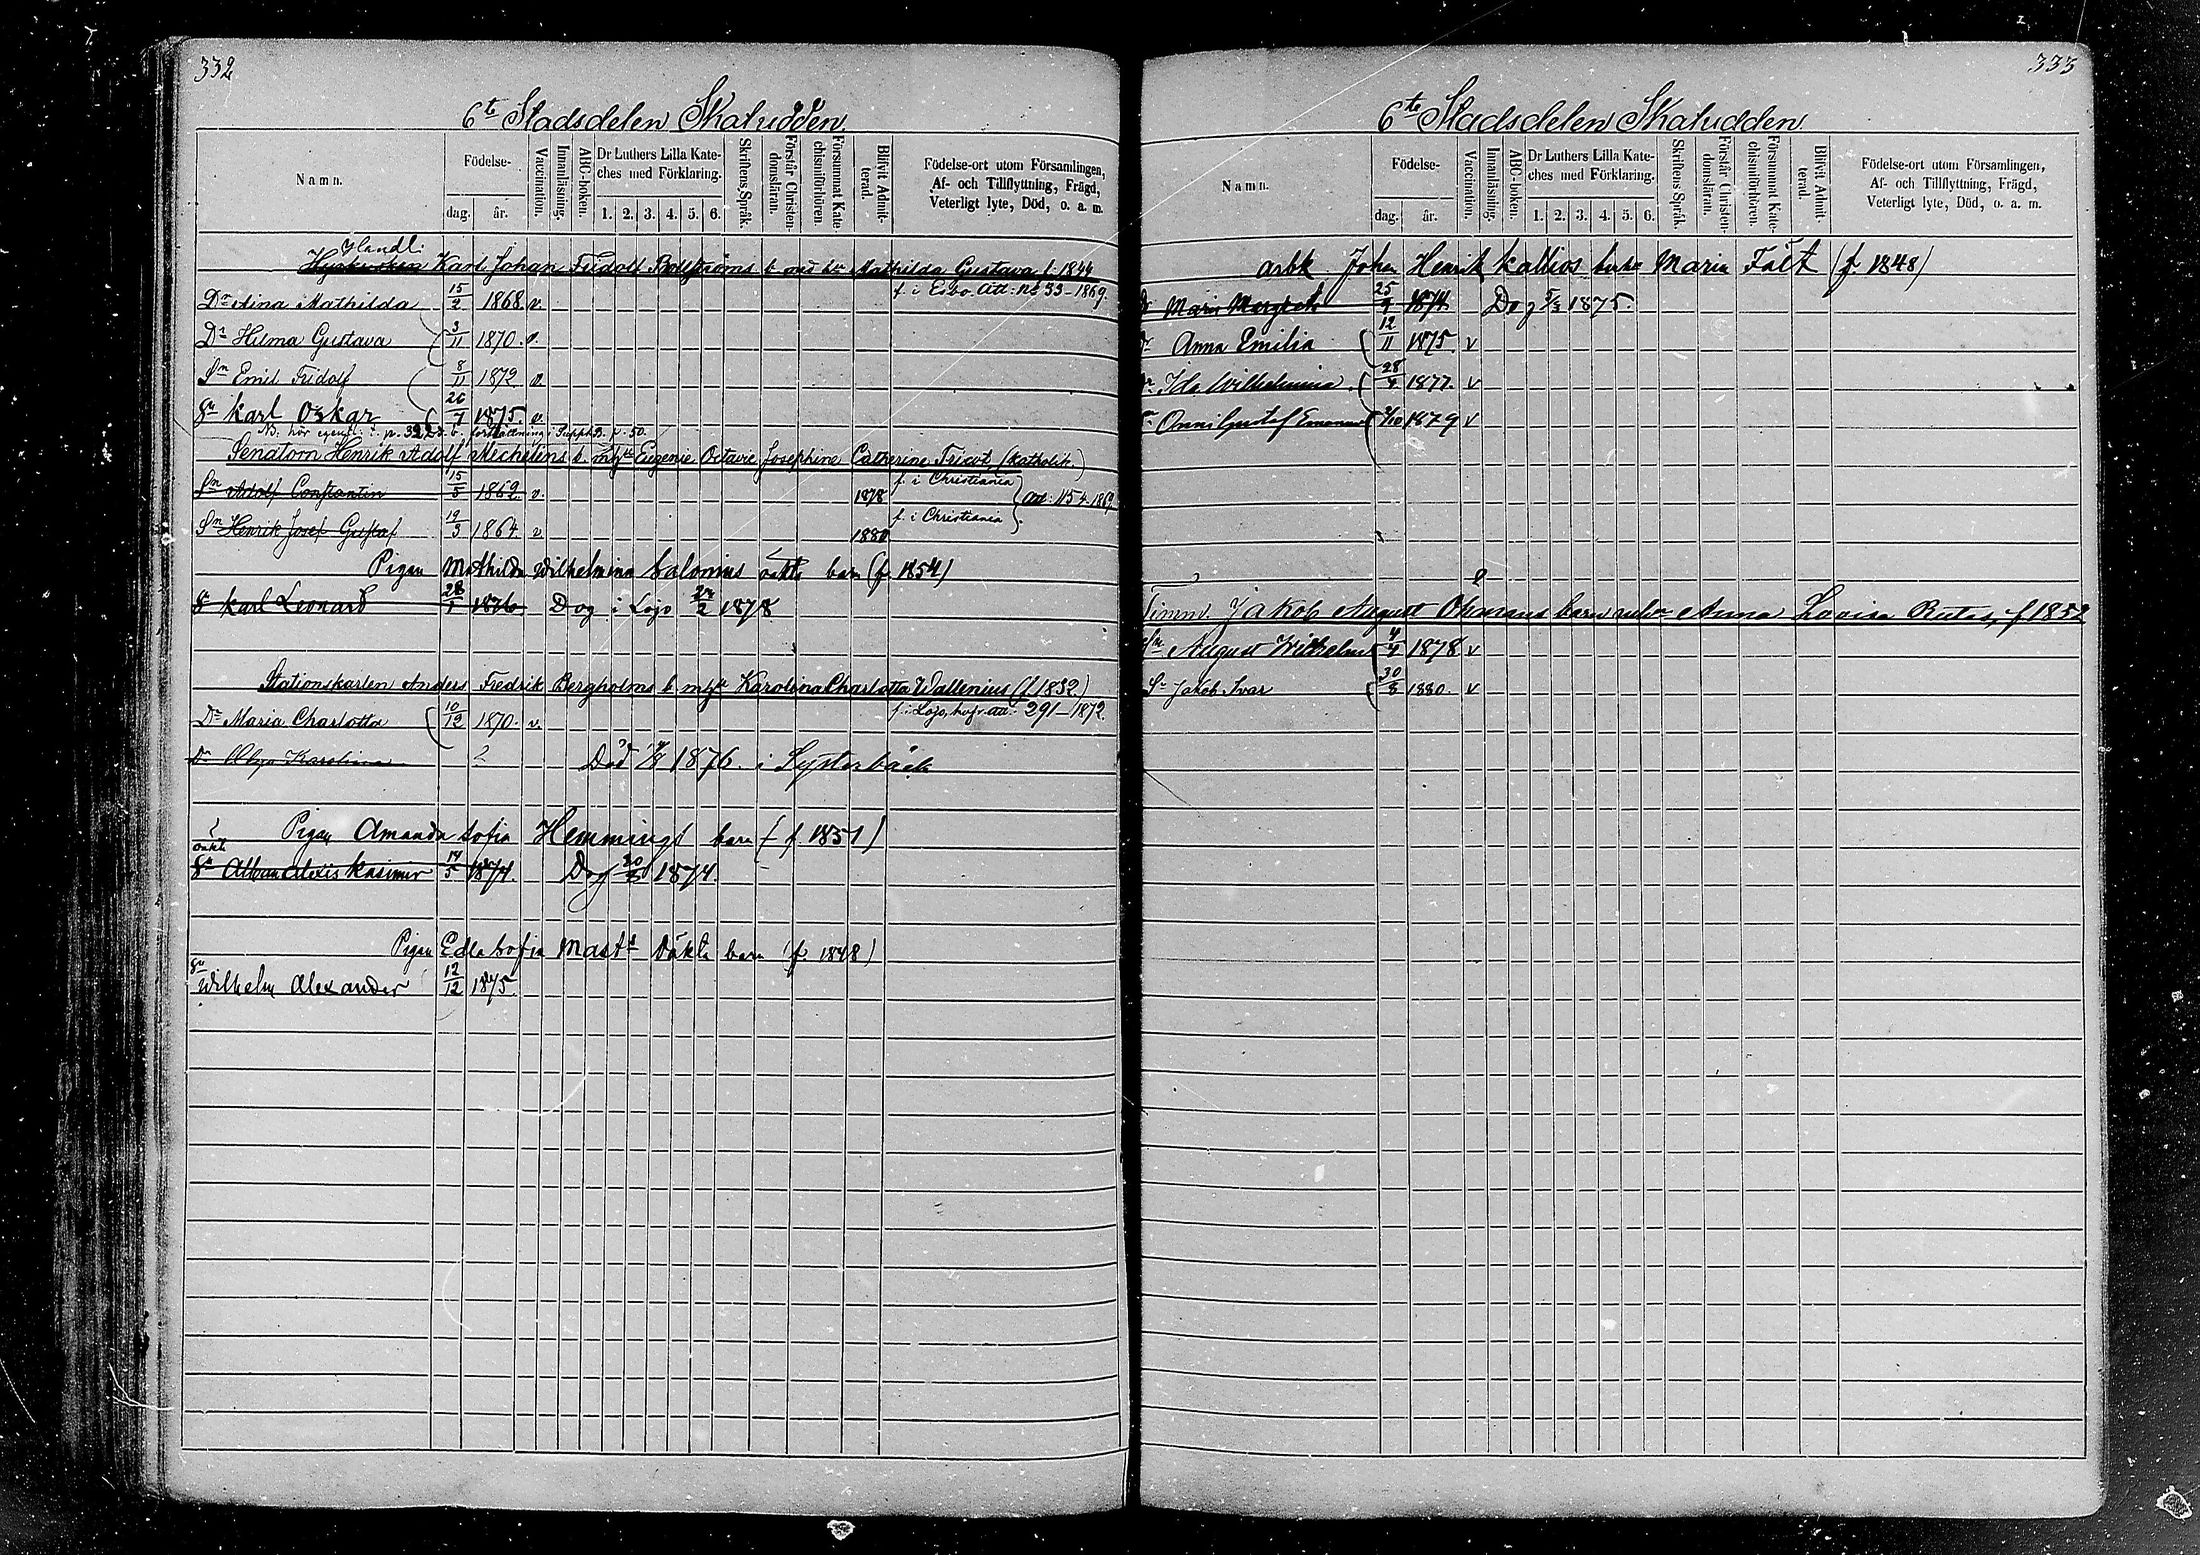 332
6te Stadsdelen Skatudden.
Namn.
Födelse-
dag. år.
Vaccination.
Innanläsning.
ABC-boken.
Dr Luthers Lilla Kate-
ches med Förklaring.
1. 2. 3. 4. 5. 6.
Skriftens Språk.
Förstår Christen-
domsläran.
Försummat Kate-
chismiförhören.
Blifvit Admit-
terad.
Födelse-ort utom Församlingen,
Af- och Tillflyttning, Frägd,
Veterligt lyte, Död, o. a. m.
Handl:
Karl Johan Fridolf b. Mathilda Gustava f. 1844
f. i Esbo. Att: No 33-1869.
Dr Aina Mathilda 15/2 1868. v.
Dr Hilma Gustava 3/11 1870. v.
Sn Emil Fridolf 8/11 1872 v.
Sn Karl Oskar 26/7 1875. v.
Senatorn Henrik Adolf Mechelins b. Eugenie Octavie Josephine Catherine Tricot, (Katholik.)
Sn Adolf Constantin 15/5 1862. v. 1878 f. i Christiania
Sn Henrik Josef Gustaf 19/3 1864 v. 1880 f. i Christiania
Pigan Mathilda Wilhelmina Salonius oäkta barn (f. 1854)
Sn Karl Leonard 28/1 1876 Dog i Lojo 1878
Stationskarlen Anders Fredrik Bergholms b. Karolina Charlotta Wallenius (f. 1832.)
f. i Lojo, att: 291-1872.
Dr Maria Charlotta 10/12 1870. v.
Dr Karolina Död 1876 i Systerbäck
Pigan Amanda Sofia Hemmings barn (f. 1851)
oäkta
Sn Alexis Kasimir 14/5 1874. Dog 1874.
Pigan Edla Sofia oäkta barn (f. 1848)
Sn
Wilhelm Alexander 12/12 1875.
333
6te Stadsdelen Skatudden.
Namn.
Födelse-
dag. år.
Vaccination.
Innanläsning.
ABC-boken.
Dr Luthers Lilla Kate-
ches med Förklaring.
1. 2. 3. 4. 5. 6.
Skriftens Språk.
Förstår Christen-
domsläran.
Försummat Kate-
chismiförhören.
Blifvit Admit-
terad.
Födelse-ort utom Församlingen,
Af- och Tillflyttning, Frägd,
Veterligt lyte, Död, o. a. m.
Arbk. Johan Henrik Kallios Maria Fält (f. 1848)
Maria Margreta 25/9 1874. Dog 5/3 1875.
Anna Emilia 12/11 1875. v
Ida Wilhelmina. 28/4 1877. v
Onni Gustaf Emanuel 1879 v
Timm. Jakob August Öhmans barn Anna Lovisa f. 1852
Sn August Wilhelm 4/4 1878. v
Sn Jakob Ivar 30/8 1880. v